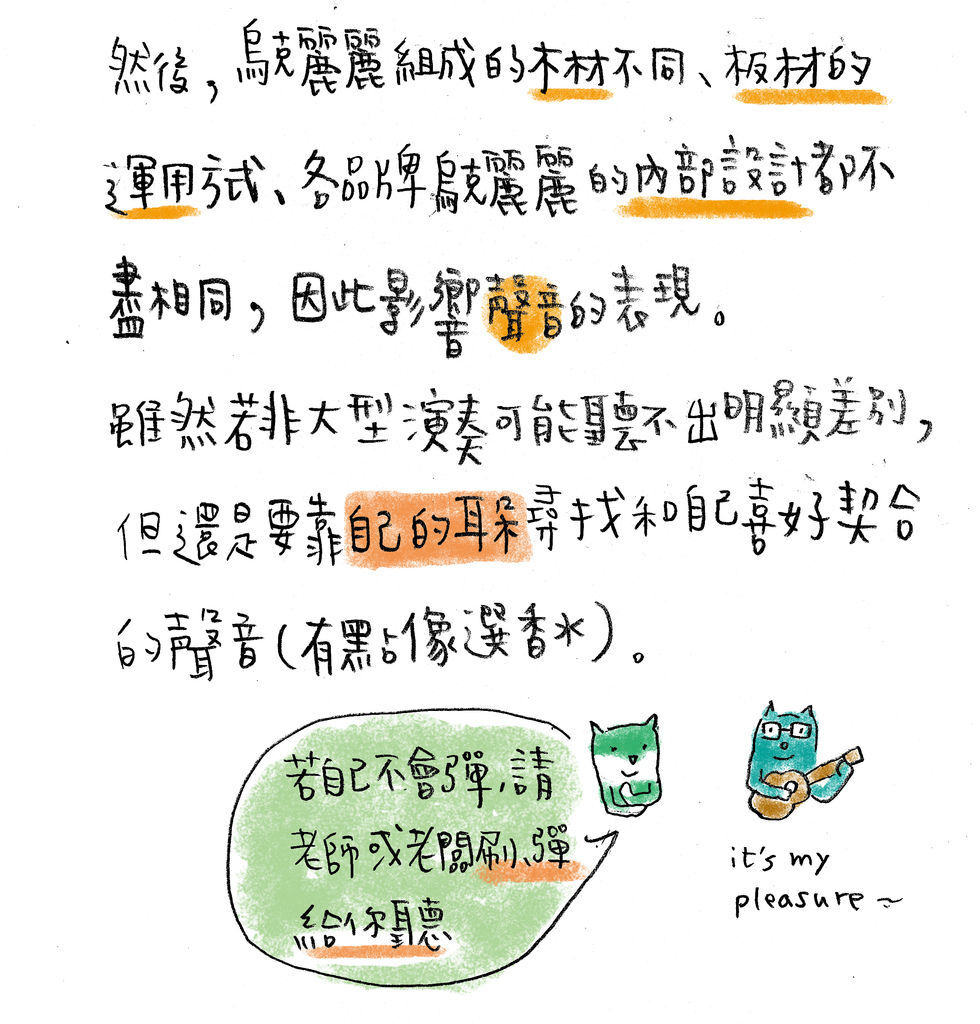 然後，烏克麗麗組成的木材不同、板材的
運用方式、各品牌烏克麗麗的內部設計都不
盡相同，因此影響聲音的表現。
雖然若非大型演奏可能聽不出明顯差別，
但還是要靠自己的耳朵尋找和自己喜好契合
的聲音(有點像選香水)。
若自己不會彈，請
老師或老闆刷、彈
給你聽
it's my
pleasure~